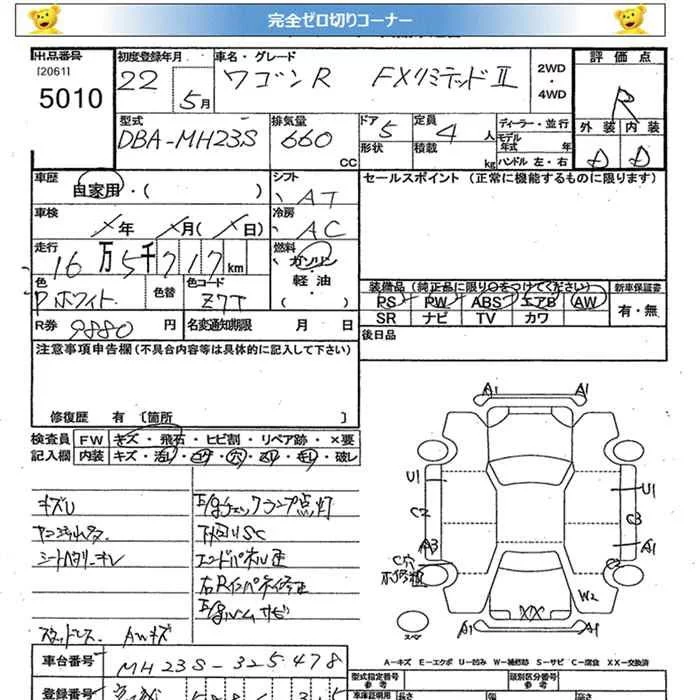 完全ゼロ切りコーナー
出品番号 初度登録年月 車名・グレード 評価点
[2061] 22 ワゴンR FXリミテッドⅡ 2WD
5010 5月 ・4WD R
型式 排気量 ドア 5 定員 4人 ディーラー・並行 外装 内装
DBA-MH23S 660 CC 形状 積載 kg モデル年式 年 D D
ハンドル 左・右
車歴 自家用・( ) シフト AT セールスポイント(正常に機能するものに限ります)
車検 X年 X月(X日) 冷房 AC
走行 16万5千717km 燃料 ガソリン
色 Pホワイト 色替 色コード Z7T 軽油
・( )
装備品(純正品に限り○をつけてください) 新車保証書
PS PW ABS エアB AW 有・無
R券 9880円 名変通知期限 月 日 SR ナビ TV カワ
注意事項申告欄(不具合内容等は具体的に記入して下さい) 後日品
修復歴 有〔箇所 〕
検査員 FW キズ・飛石・ヒビ割・リペア跡・×要
記入欄 内装 キズ・汚レ・コゲ・穴・スレ・キレ・破レ
キズU E/gチェックランプ点灯
下回りSC
エンドパネル歪
右Rインパネ修正
E/gルームサビ
スタッドレス AWキズ
A1 A1
U1 U1
C2 C3
A3 A1
C穴
W2
XX
A1 A1
スペア
A-キズ E-エクボ U-凹み W-補修跡 S-サビ C-腐食 XX-交換済
車台番号 MH23S-325478 型式指定番号 類別区分番号
参考 参考
登録番号 車庫証明用 長さ 幅 高さ